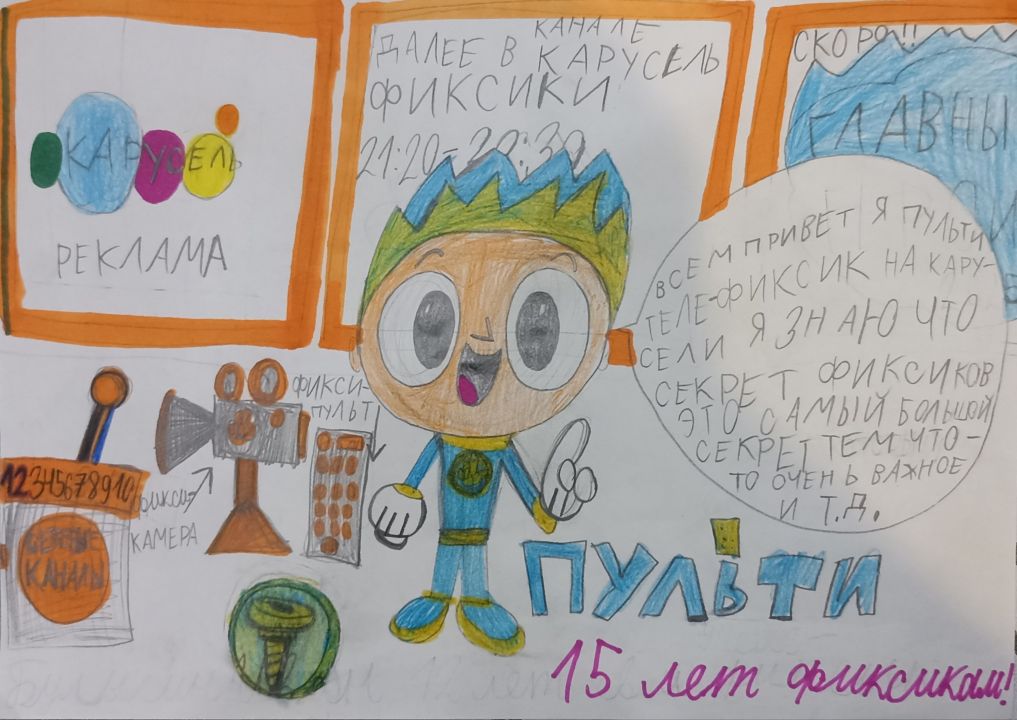 КАРУСЕЛЬ
РЕКЛАМА
ДАЛЕЕ В КАНАЛЕ
КАРУСЕЛЬ
ФИКСИКИ
21:20-20:30
СКОРО!!
ГЛАВНЫ
ВСЕМ ПРИВЕТ Я ПУЛЬТИ
ТЕЛЕ-ФИКСИК НА КАРУ-
СЕЛИ Я ЗНАЮ ЧТО
СЕКРЕТ ФИКСИКОВ
ЭТО САМЫЙ БОЛЬШОЙ
СЕКРЕТ ТЕМ ЧТО-
ТО ОЧЕНЬ ВАЖНОЕ
И Т.Д.
ФИКСИ-
ПУЛЬТ
ФИКСИ-
КАМЕРА
12345678910
КАНАЛЫ
ПУЛЬТИ
15 лет фиксикам!